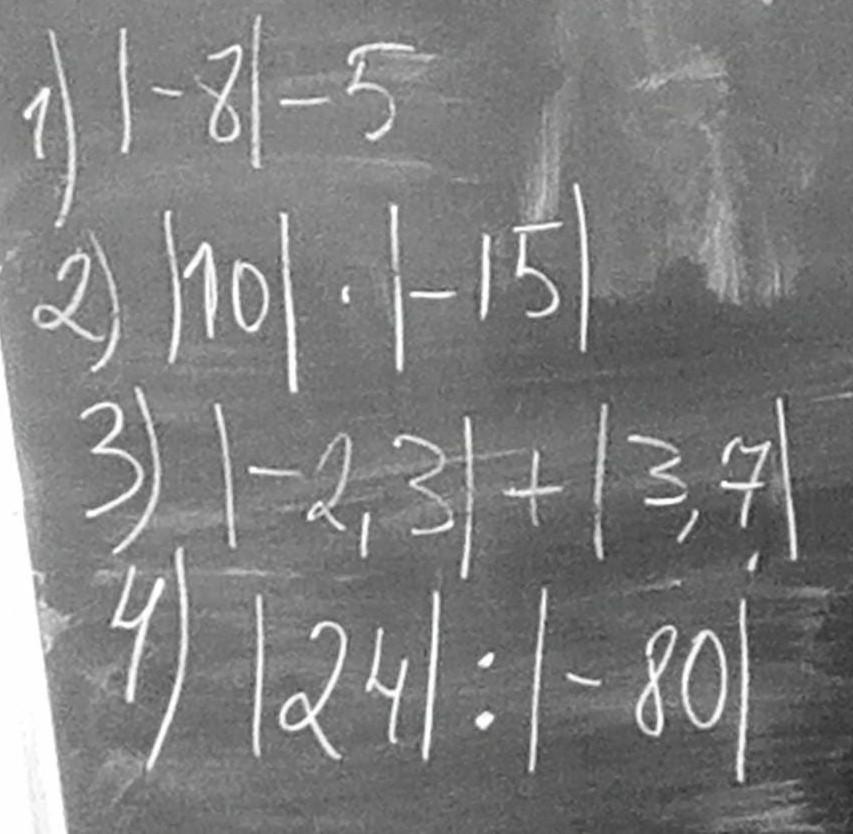 1) |-8|-5
2) |10|·|-15|
3) |-2,3|+|3,7|
4) |24|:|-80|